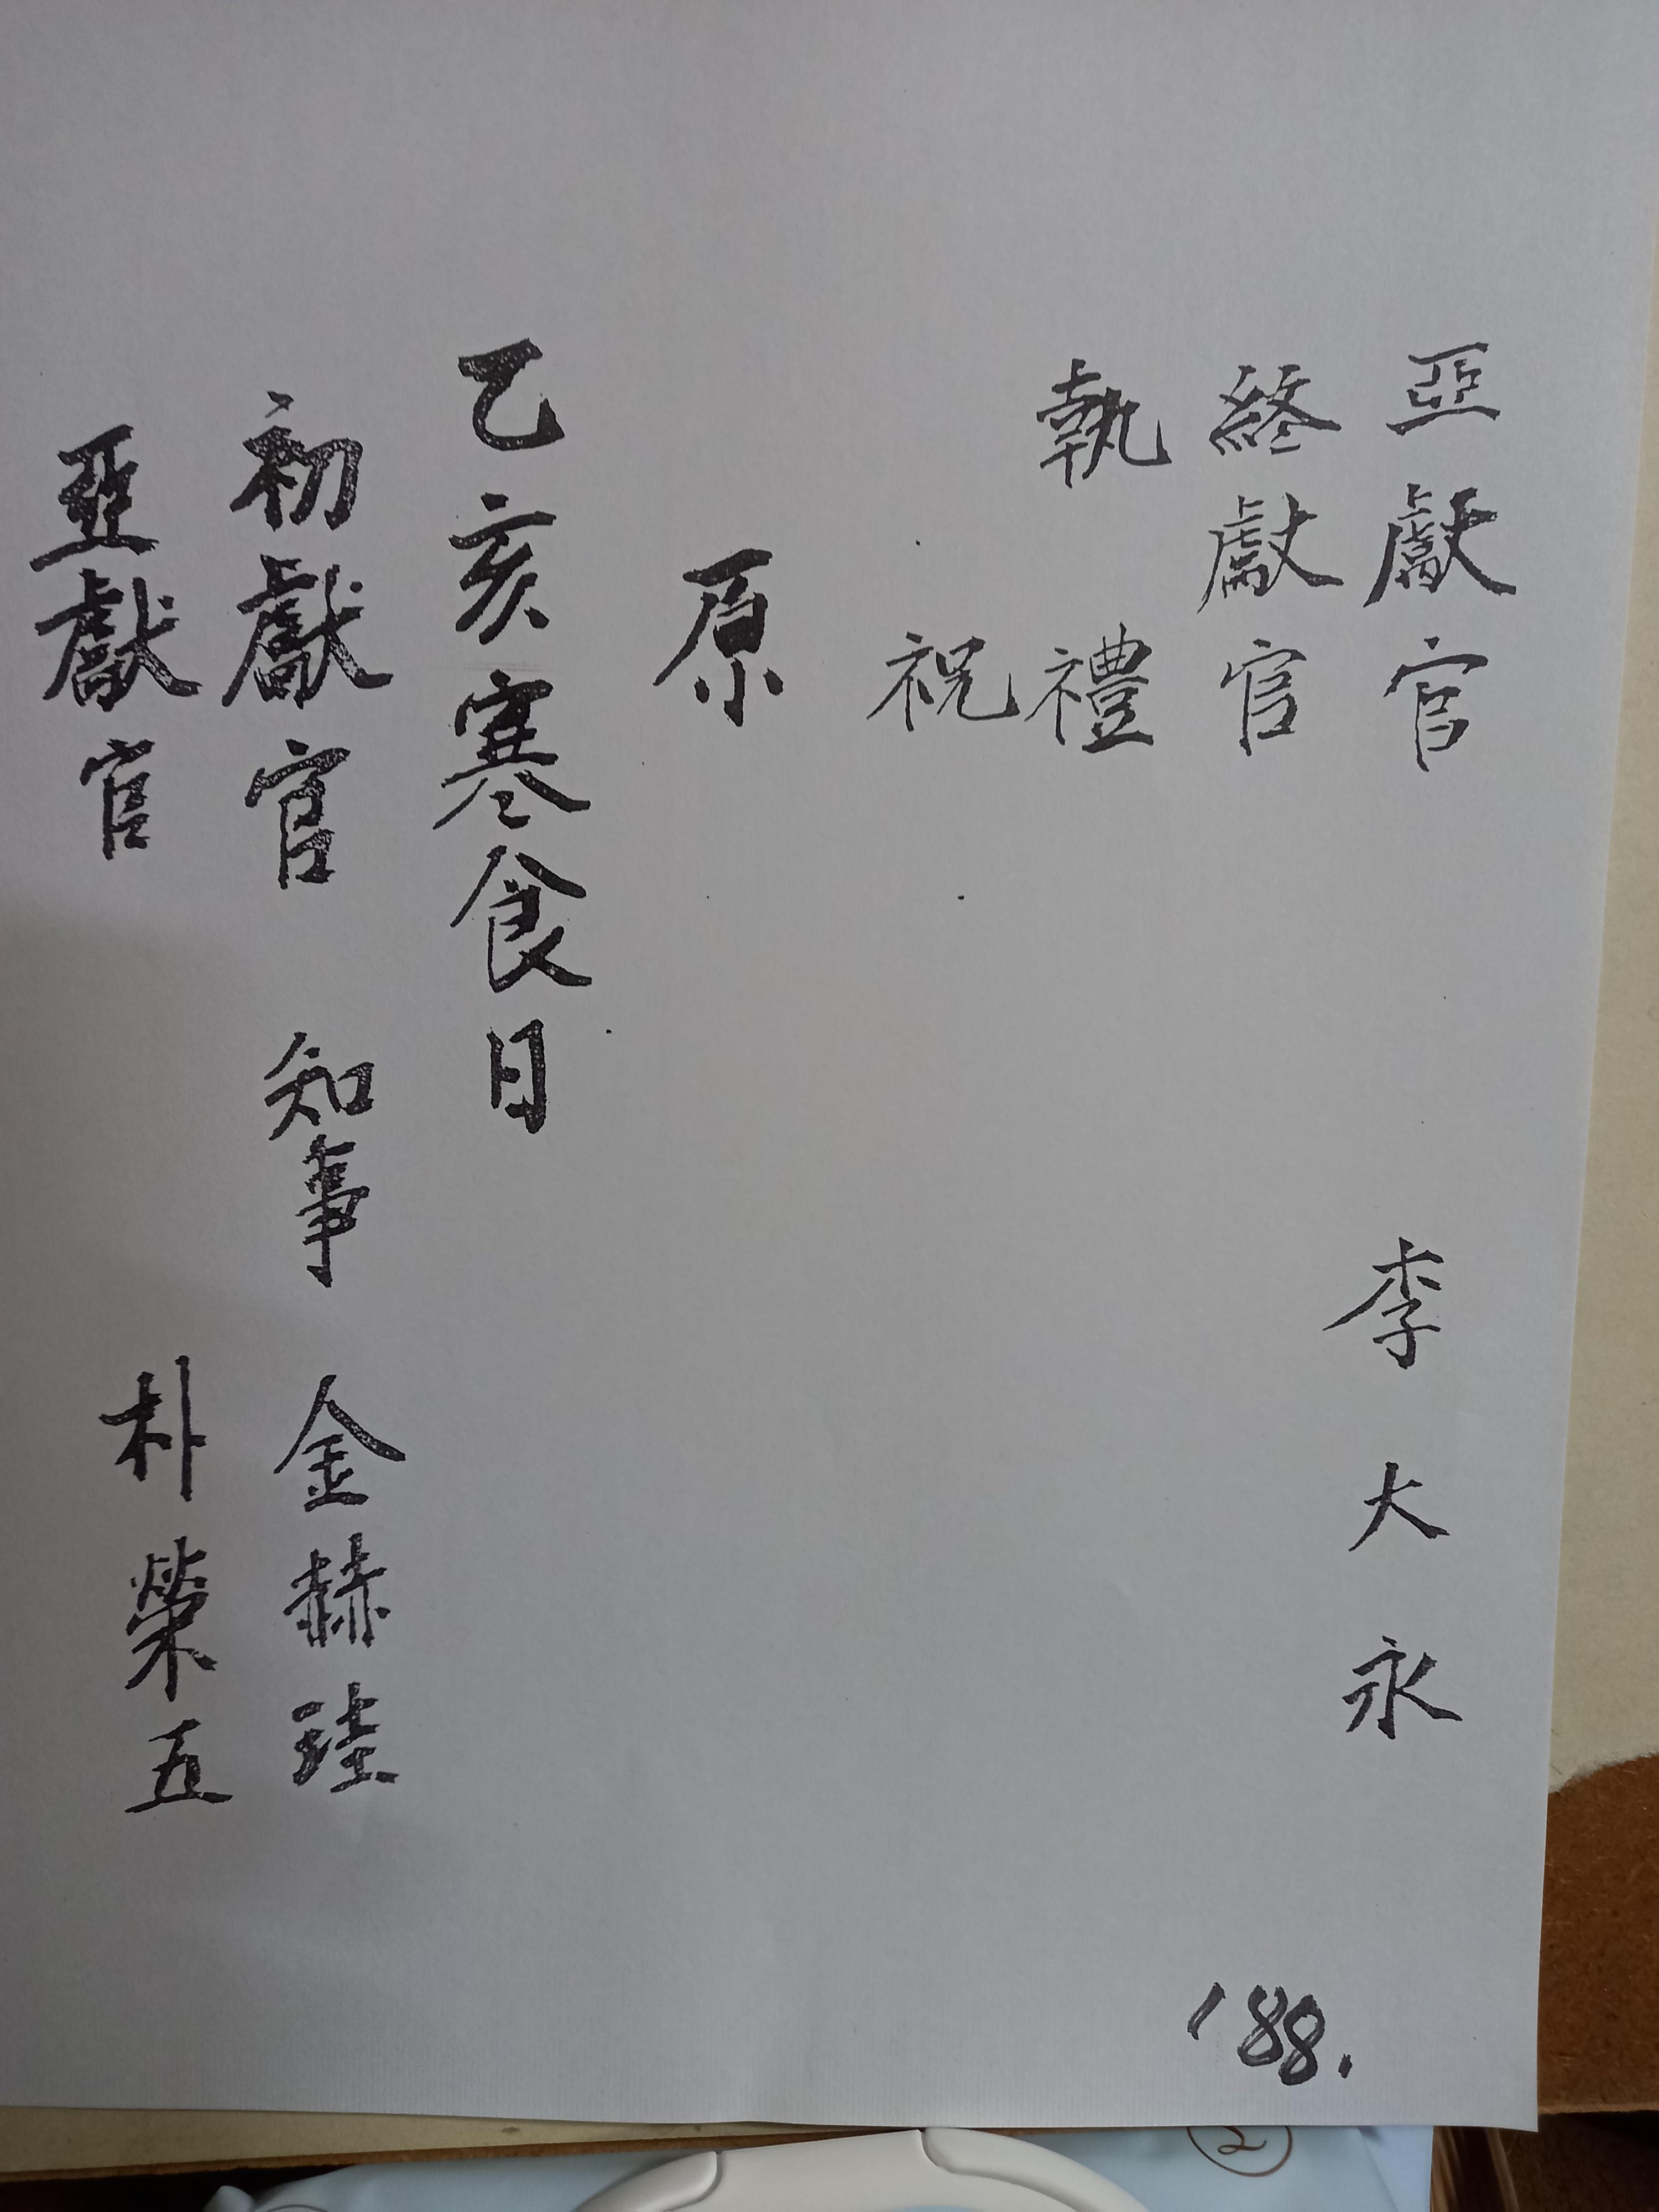 亞獻官 李大永
終獻官
執禮
祝
原
乙亥寒食日
初獻官 知事 金赫珪
亞獻官 朴榮五
188.
2